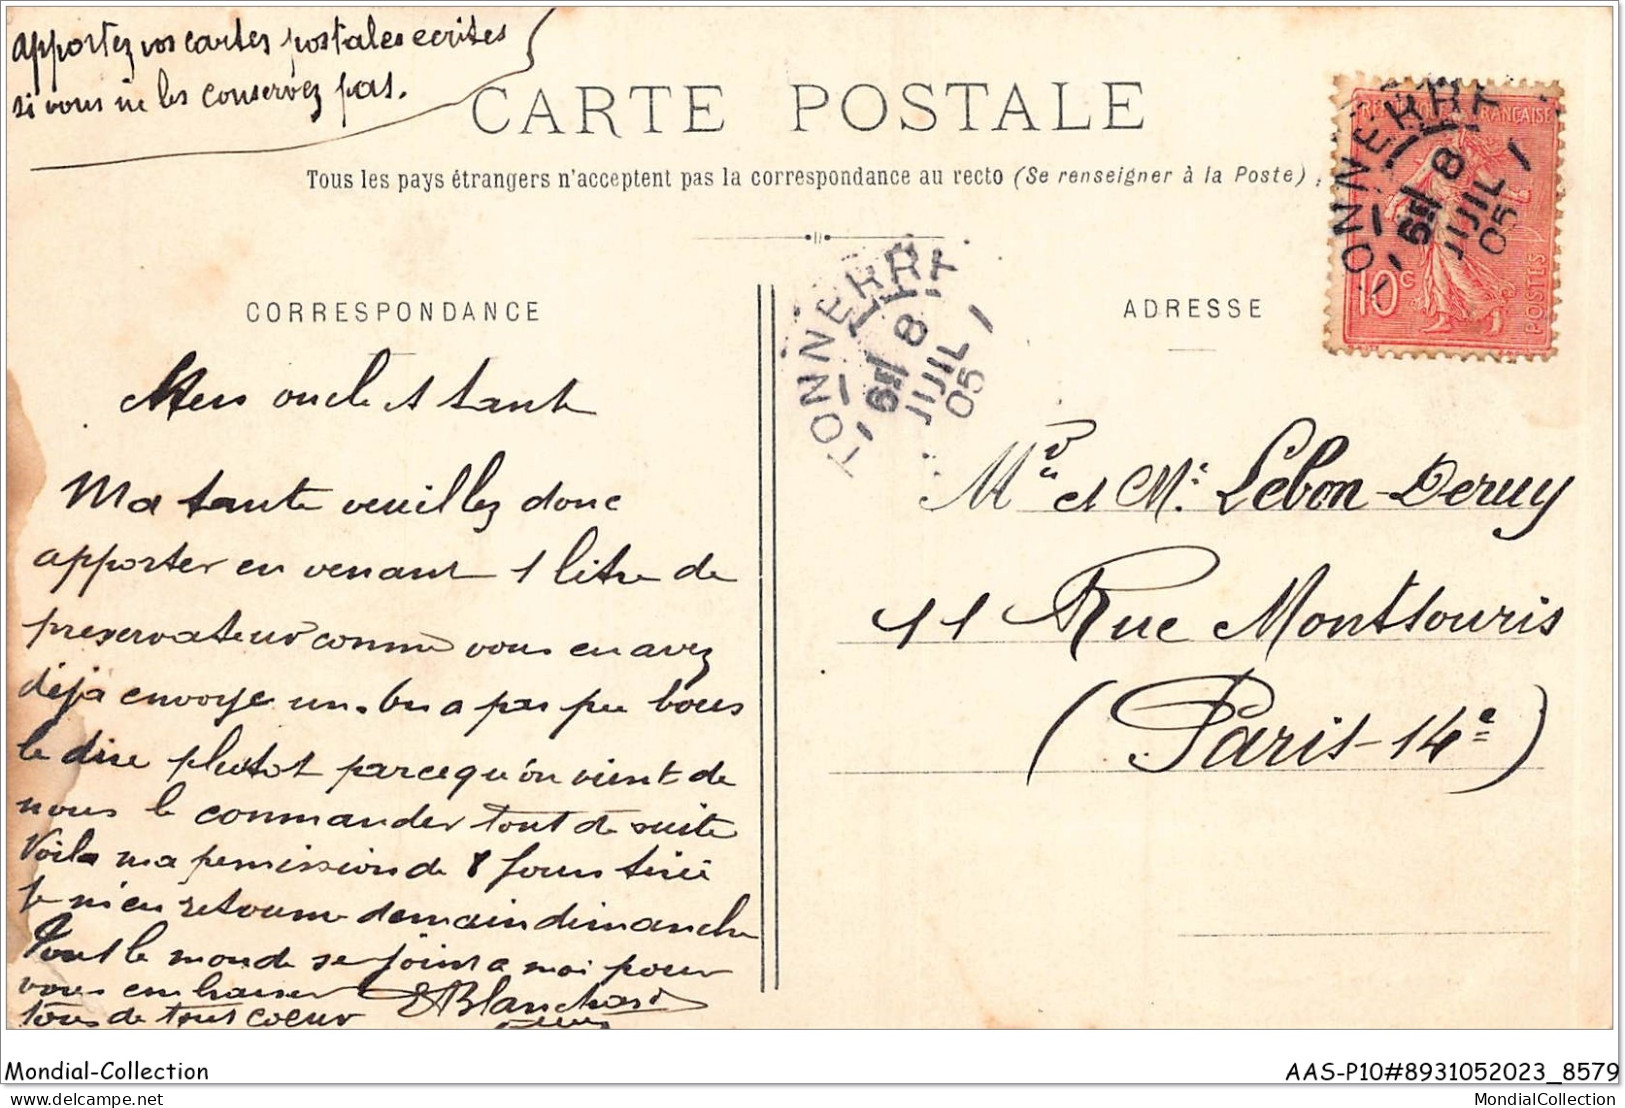 apportez vos cartes postales ecrites
si vous ne les conservez pas.
CARTE POSTALE
Tous les pays étrangers n'acceptent pas la correspondance au recto (Se renseigner à la Poste)
CORRESPONDANCE
ADRESSE
TONNERRE
6E
8
JUIL
05
TONNERRE
6E
8
JUIL
05
FRANÇAISE
10c
POSTES
Mes oncle et tante
Ma tante veuillez donc
apporter en venant 1 litre de
preservateur comme vous en avez
déjà envoye un. On a pas pu vous
le dire plutot parcequ'on vient de
nous le commander tout de suite
Voila ma permission de 8 jours tirée
je m'en retourne demain dimanche
Tout le monde se joint a moi pour
vous embrasser
tous de tout coeur
Blanchard
Mr et Me Lebon-Deruy
11 Rue Montsouris
(Paris-14e)
Mondial-Collection
AAS-P10#8931052023_8579
delcampe.net
MondialCollection